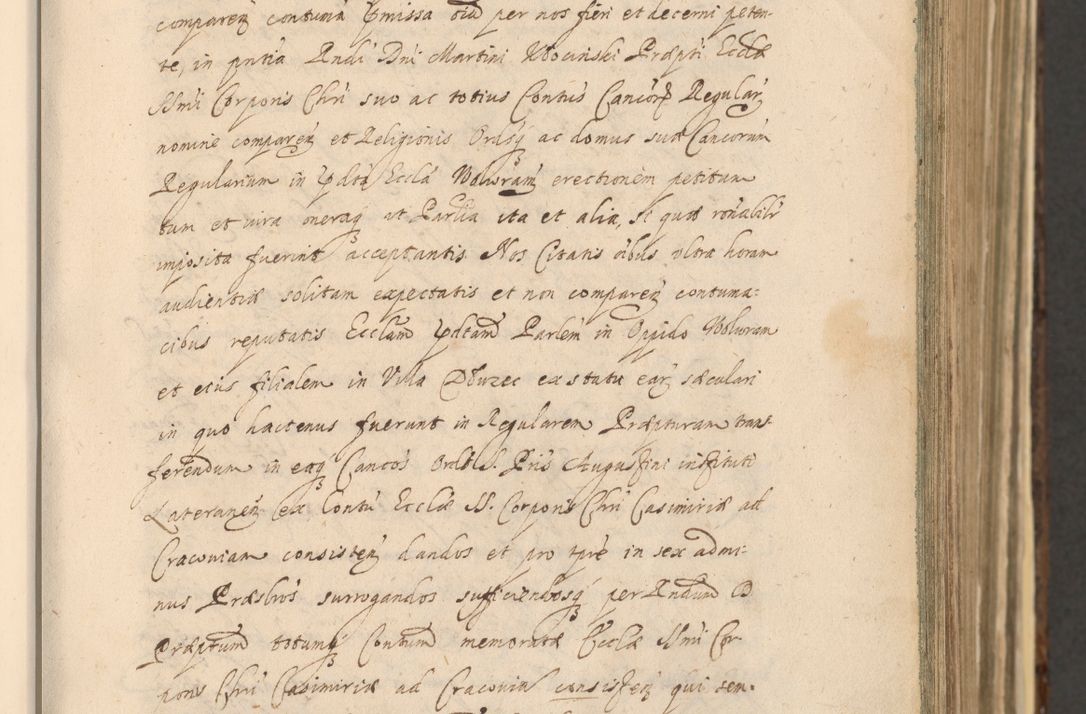 comparen contuma pmissa oia per nos fieri et decerni peten-
te, in pntia Rndi Dni Martini Kłocinski Præpti Ecclæ
SSmi Corporis Chri suo ac totius Contus Cancorũ Regular
nomine comparen et Religionis Ordisq ac domus suæ Cancorum
Regularium in pdta Eccla Wolwram erectionem petitam
tum et iura oneraq ut Parlia ita et alia, si quæ ronabilr
imposita fuerint acceptantis Nos Citatis oibus ultra horam
audientiæ solitam expectatis et non comparen contuma:
cibus reputatis Ecclam pdtam Parlem in Oppido Wolwram
et eius filialem in Villa Dłuzec ex statu ear sæculari
in quo hactenus fuerunt in Regularem Præpturam trans-
ferendum in eaq Cancos Ordis S. Pris Augustini instituti
Lateranen ex Contu Ecclæ SS. Corporis Chri Casimiriæ ad
Cracoviam consisten dandos et pro tpre in sex admi-
nus Præsbros surrogandos sufficiendosq per Rndum D
Præptum totumq Contum memoratæ Ecclæ SSmi Cor-
poris Chri Casimiriæ ad Cracoviã consisten qui sen-